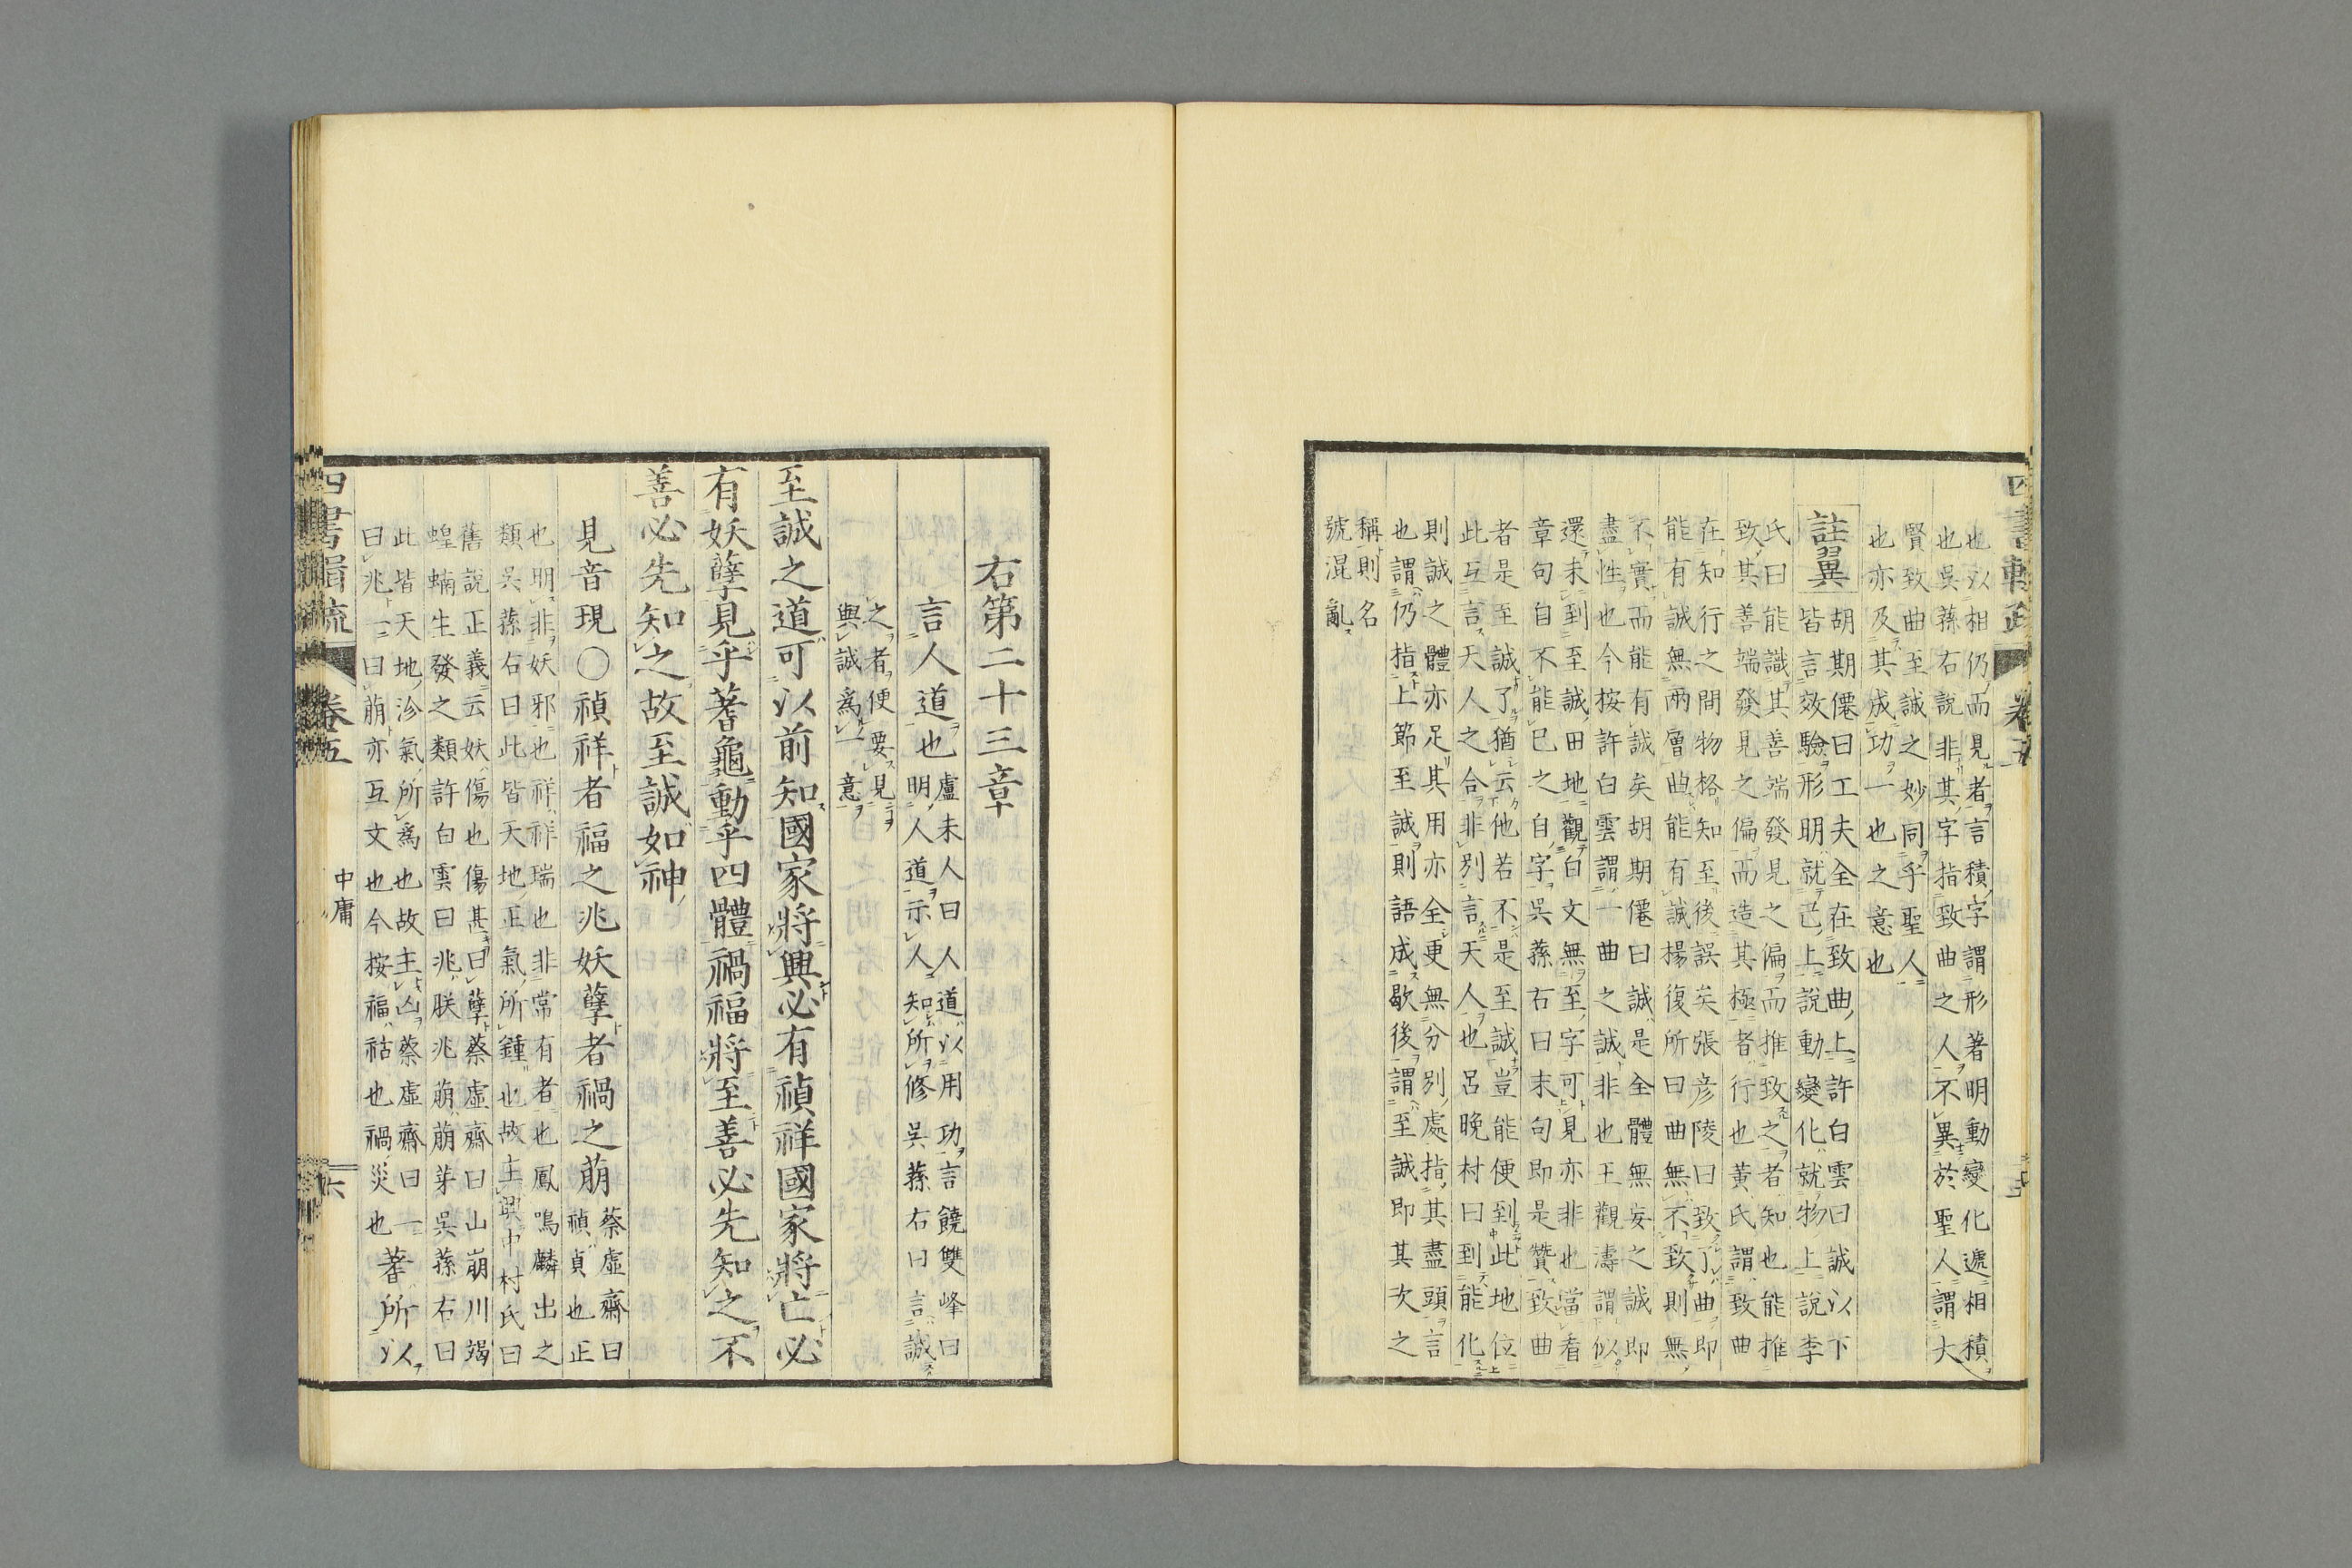 也以相仍而見者言積字謂形著明動變化遞相積
也吳蓀右說非其字指致曲之人不異於聖人謂大
賢致曲至誠之妙同乎聖人
也亦及其成功一也之意也
註翼
胡期僊曰工夫全在致曲上許白雲曰誠以下
皆言效驗形明就已上說動變化就物上說李
氏曰能識其善端發見之偏而推致之者知也能推
致其善端發見之偏而造其極者行也黃氏謂致曲
在知行之間物格知至後誤矣張彦陵曰致了曲即
能有誠無兩層曲能有誠楊復所曰曲無不致則無
不實而能有誠矣胡期僊曰誠是全體無妄之誠即
盡性也今按許白雲謂一曲之誠非也王觀濤謂似
還未到至誠田地觀白文無至字可見亦非也當看
章句自不能已之自字吳蓀右曰末句即是贊致曲
者是至誠了猶云他若不是至誠豈能便到此地位
此互言天人之合非別言天人也呂晚村曰到能化
則誠之體亦足其用亦全更無分別處指其盡頭言
也謂仍指上節至誠則語成歇後謂至誠即其次之
稱則名
號混亂
四書輯疏
卷五
右第二十三章
言人道也
盧未人曰人道以用功言饒雙峰曰
明人道示人知所修吳蓀右曰言誠
之者便要見
與誠爲一意
至誠之道可以前知國家將興必有禎祥國家將亡必
有妖孽見乎蓍龜動乎四體禍福將至善必先知之不
善必先知之故至誠如神
見音現○禎祥者福之兆妖孽者禍之萌
蔡虛齋曰
禎貞也正
也明非妖邪也祥祥瑞也非常有者也鳳鳴麟出之
類吳蓀右曰此皆天地正氣所鍾也故主中村氏曰
舊說正義云妖傷也傷甚曰孽蔡虛齋曰山崩川竭
蝗蝻生發之類許白雲曰兆朕兆萌萌芽吳蓀右曰
此皆天地沴氣所爲也故主凶蔡虛齋曰一
曰兆一曰萌亦互文也今按福祜也禍災也
蓍所以
四書輯疏
卷五
中庸
六